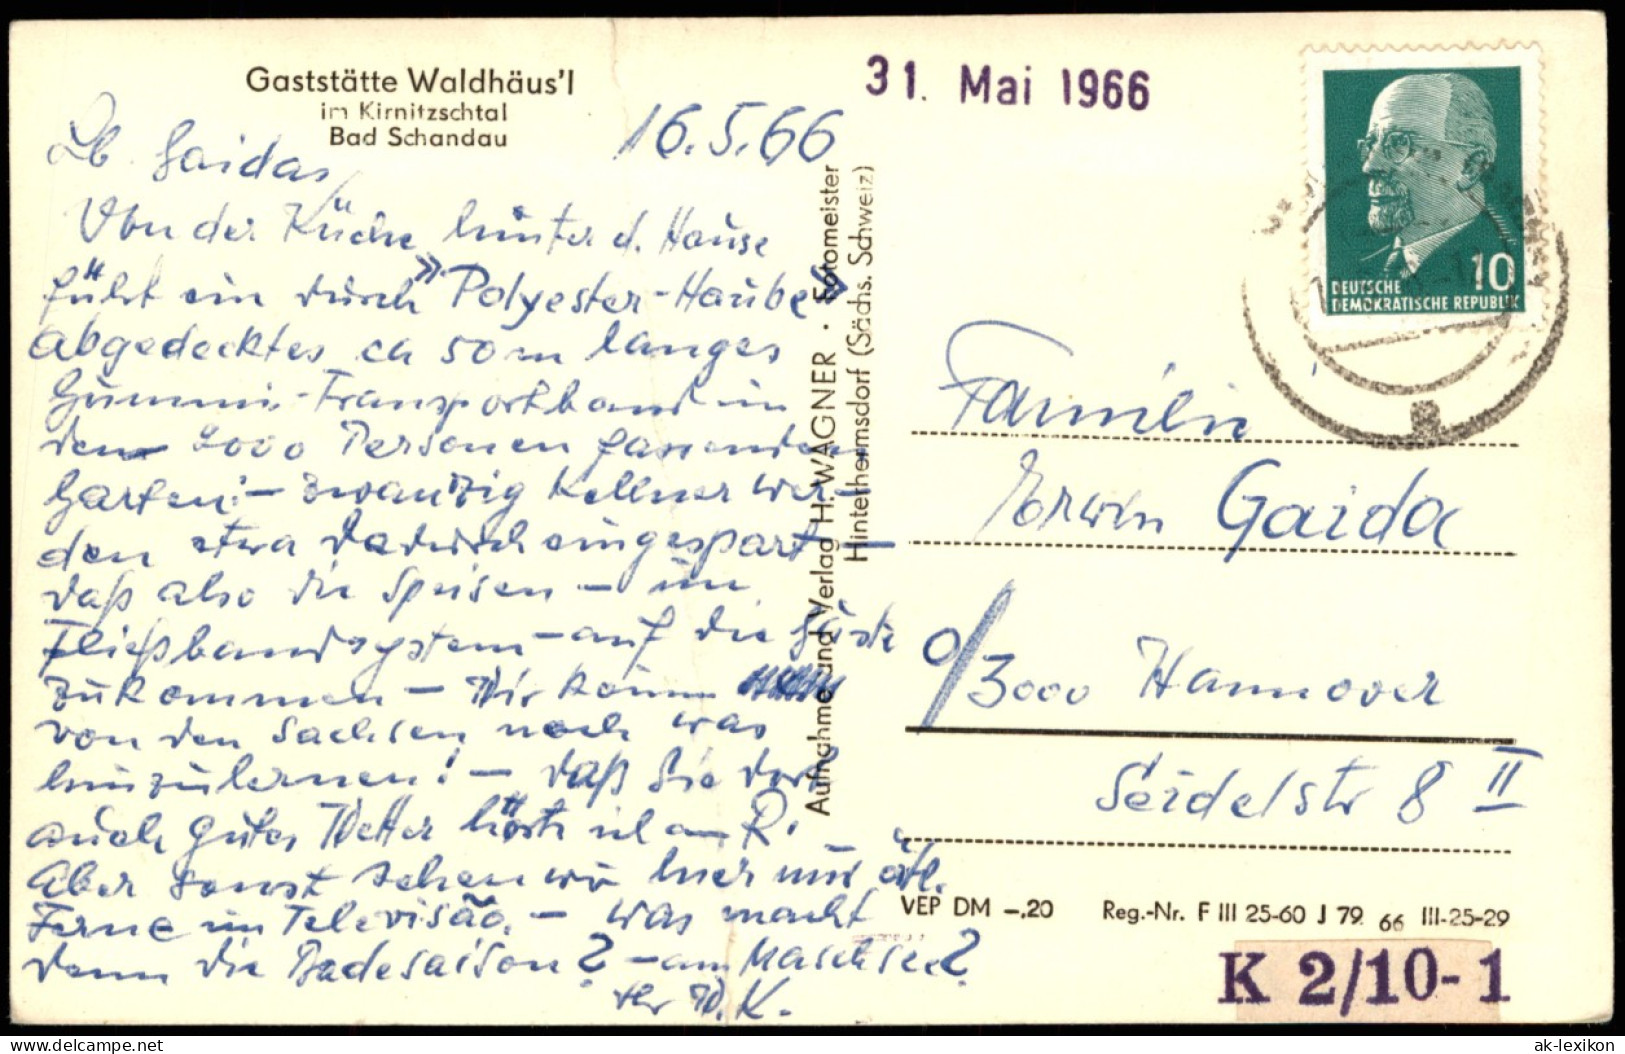 Gaststätte Waldhäus'l
im Kirnitzschtal
Bad Schandau
16.5.66
Lb. Gaidas,
Von der Küche hinter d. Hause
führt ein durch "Polyester-Haube"
abgedecktes ca 50 m langes
Gummi-Transportband in
den 2000 Personen fassenden
Garten! - zwanzig Kellner wer-
den etwa dadurch eingespart -
daß also die Speisen - im
Fließbandsystem - auf die Gäste
zukommen - Wir können
von den Sachsen noch was
hinzulernen! - daß Sie dort
auch gutes Wetter hörte ich am R.
Aber sonst sehen wir hier nur
Ferne im Televisão. - was macht
denn die Badesaison? - am Maschsee?
Ihr W. K.
Aufnahme und Verlag H. WAGNER · Fotomeister
Hinterhermsdorf (Sächs. Schweiz)
31. Mai 1966
10
DEUTSCHE
DEMOKRATISCHE REPUBLIK
Familie
Erwin Gaida
3000 Hannover
Seidelstr 8 II
VEP DM -,20 Reg.-Nr. F III 25-60 J 79 66 III-25-29
K 2/10-1
delcampe.net
ak-lexikon